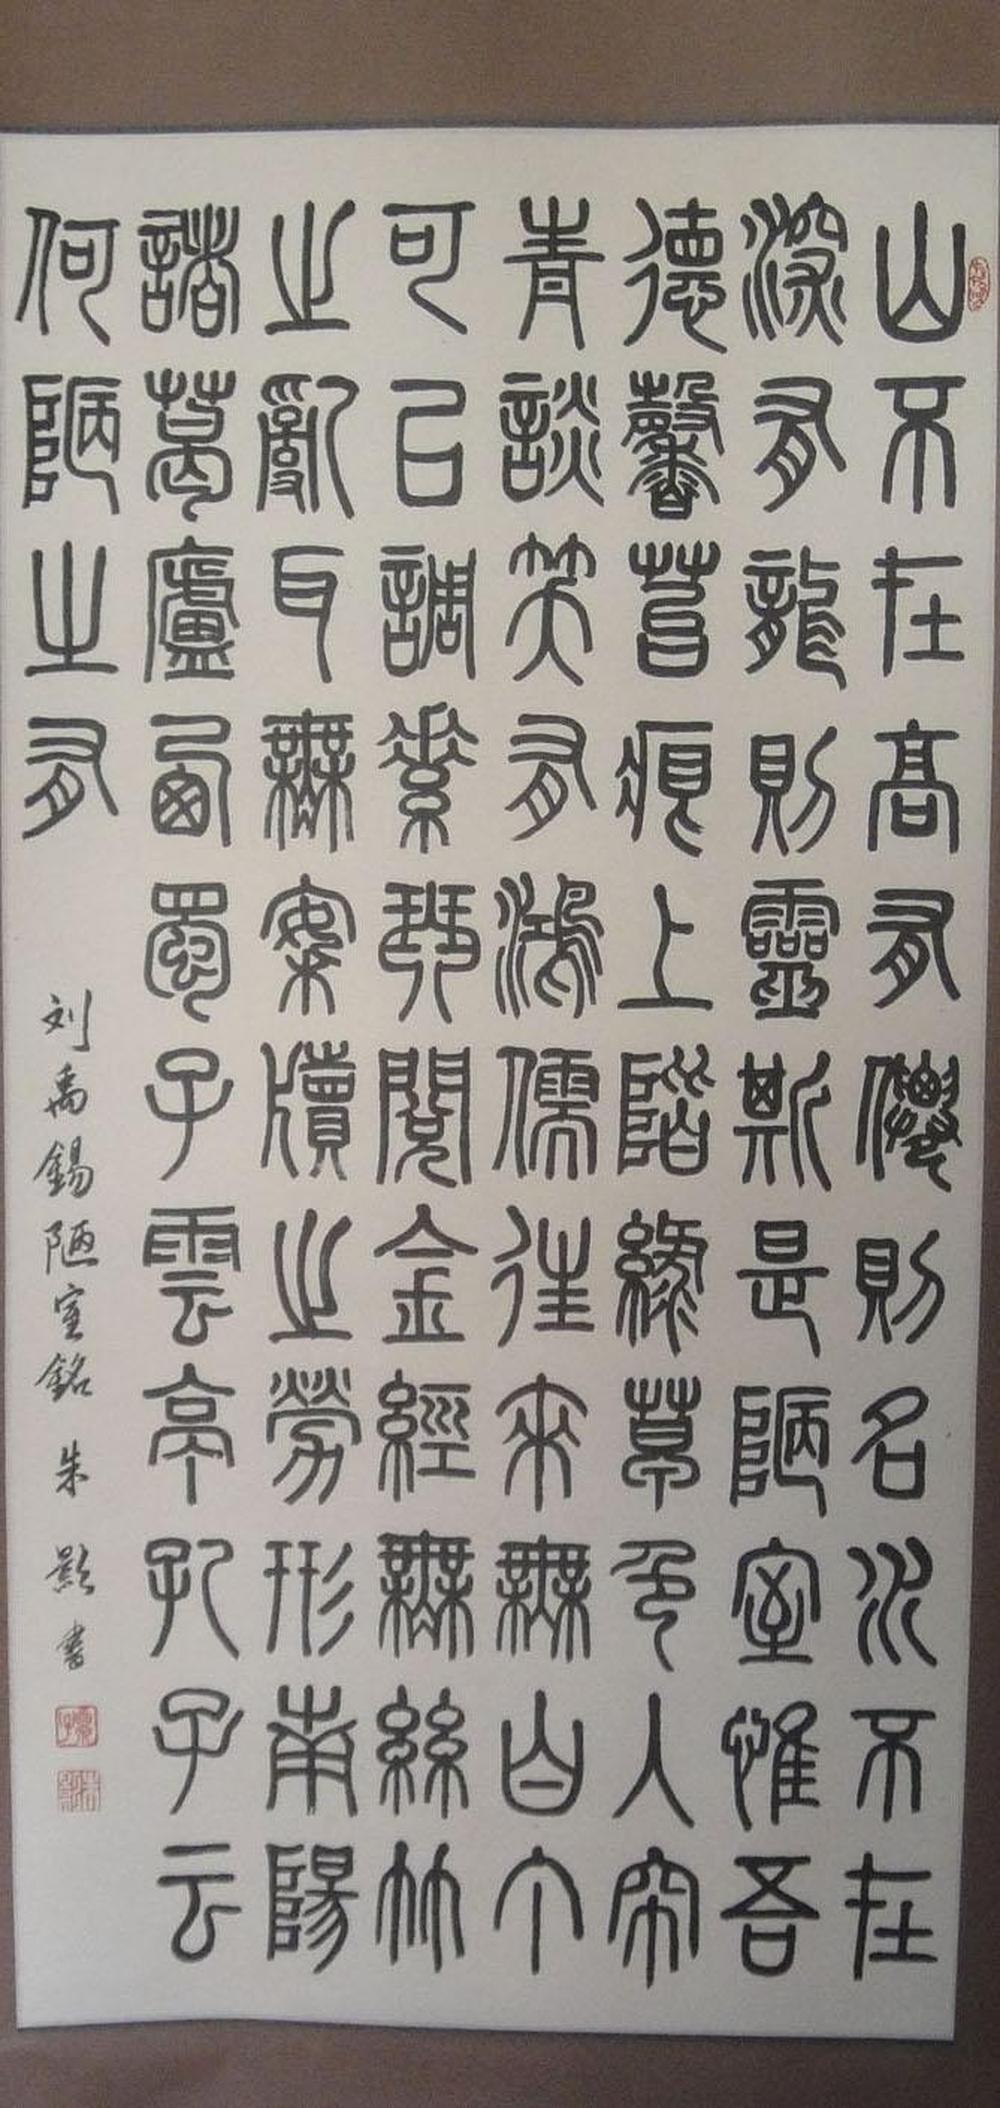 山不在高有僊則名水不在
深有龍則靈斯是陋室惟吾
德馨苔痕上階綠草色入帘
青談笑有鴻儒往來無白丁
可以調素琴閱金經無絲竹
之亂耳無案牘之勞形南陽
諸葛廬西蜀子雲亭孔子云
何陋之有
刘禹錫陋室銘 朱影書